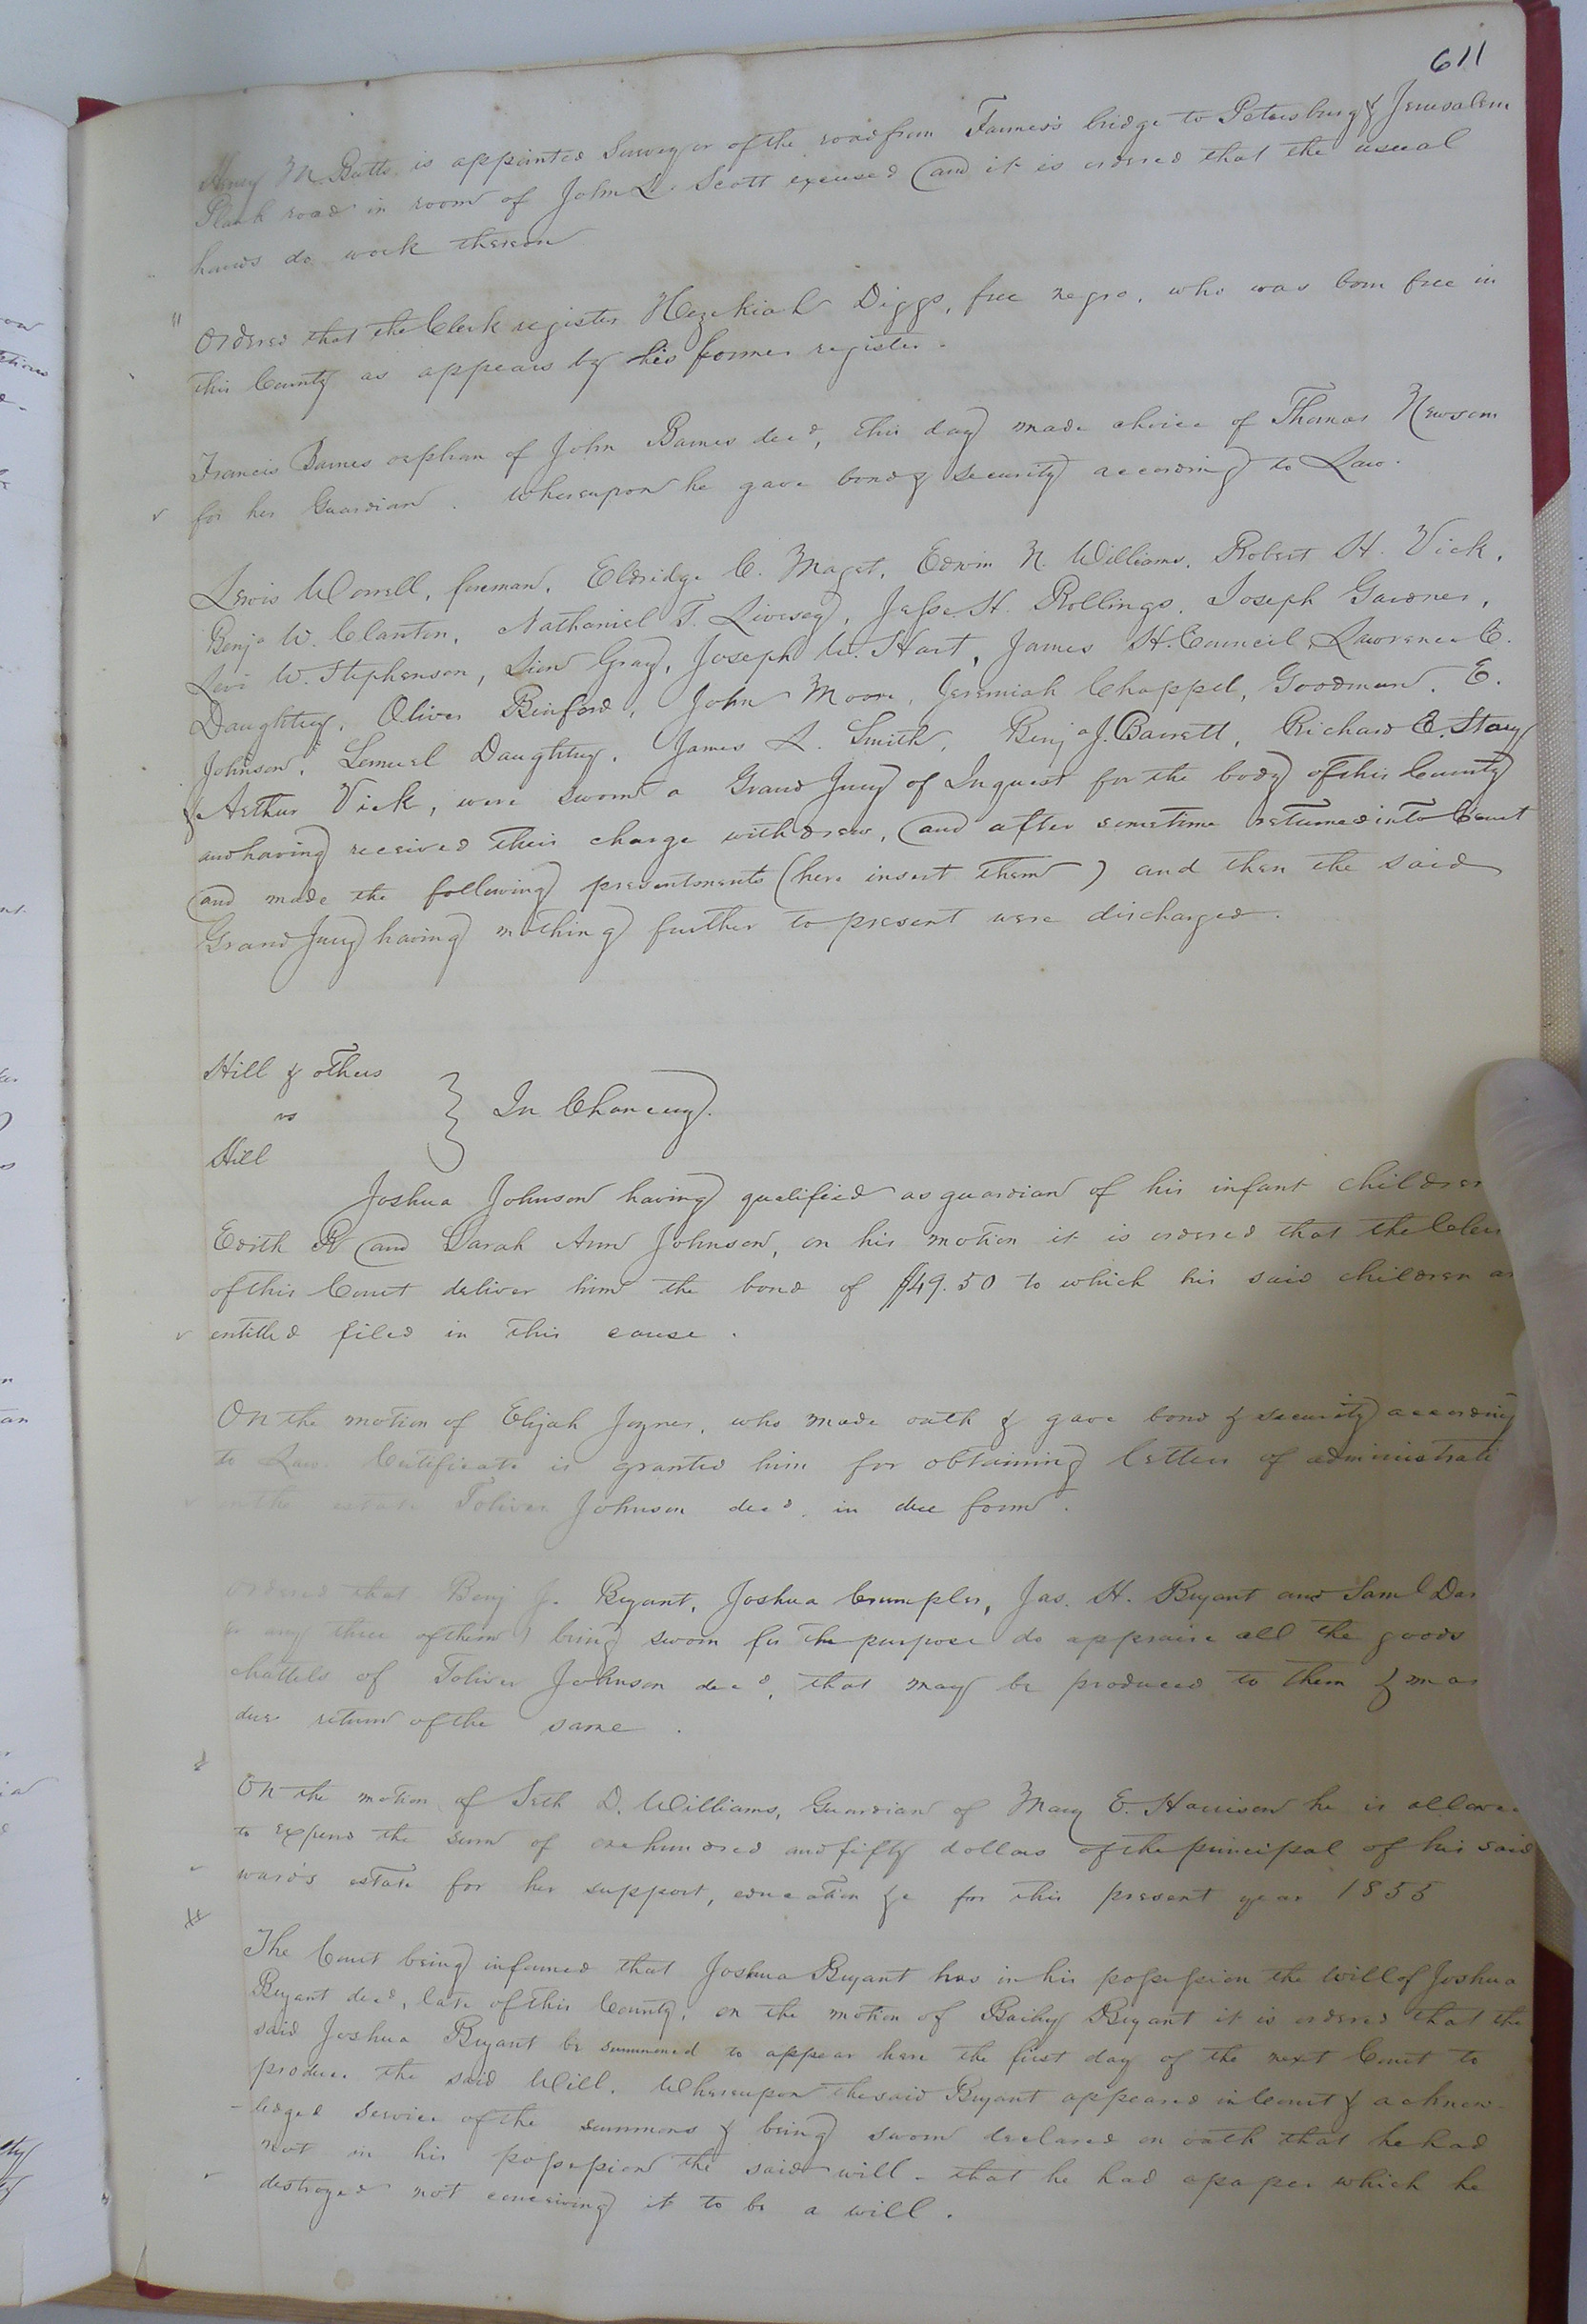 611
Henry M Butts is appointed Surveyor of the road from Farmer's bridge to Petersburg & Jerusalem
Plank road in room of John L. Scott excused and it is ordered that the usual
hands do work thereon
Ordered that the Clerk register Hezekiah Diggs, free negro, who was born free in
this County as appears by his former register.
Francis Barnes orphan of John Barnes decd, this day made choice of Thomas Newsom
for her Guardian. Whereupon he gave bond & security according to Law.
Lewis Worrell, foreman, Eldridge C. Maget, Edwin N. Williams, Robert H. Vick,
Benja W. Clanton, Nathaniel T. Livesay, Jesse H. Rollings, Joseph Gardner,
Levi W. Stephenson, Gray, Joseph W. Hart, James H. Council, Lawrence C.
Daughtry, Oliver Binford, John Moore, Jeremiah Chappel, Goodman, E.
Johnson, Lemuel Daughtry, James L. Smith, Benja J. Barrett, Richard E. Stacy
& Arthur Vick, were sworn a Grand Jury of Inquest for the body of this County
and having received their charge withdrew, and after sometime returned into Court
and made the following presentments (here insert them) and then the said
Grand Jury having nothing further to present were discharged.
Hill & others
vs
Hill
In Chancery.
Joshua Johnson having qualified as guardian of his infant children
Edith R and Sarah Ann Johnson, on his motion it is ordered that the Cler
of this Court deliver him the bond of $49.50 to which his said children ar
entitled filed in this cause.
On the motion of Elijah Joyner, who made oath & gave bond & security according
to Law. Certificate is granted him for obtaining letters of administrati
on the estate Toliver Johnson decd. in due form.
Ordered that Benj J. Bryant, Joshua Crumpler, Jas. H. Bryant and Saml Dar
or any three of them being sworn for the purpose do appraise all the goods
chattels of Toliver Johnson decd, that may be produced to them & mak
due return of the same.
On the motion of Seth D. Williams, Guardian of Mary E. Harrison he is allowed
to expend the sum of one hundred and fifty dollars of the principal of his said
ward's estate for her support, education &c for this present year 1855
The Court being informed that Joshua Bryant has in his possession the will of Joshua
Bryant decd, late of this County, on the motion of Bailey Bryant it is ordered that the
said Joshua Bryant be summoned to appear here the first day of the next Court to
produce the said Will. Whereupon the said Bryant appeared in Court & acknow-
ledged service of the summons & being sworn declared on oath that he had
not in his possession the said will - that he had a paper which he
destroyed not conceiving it to be a will.